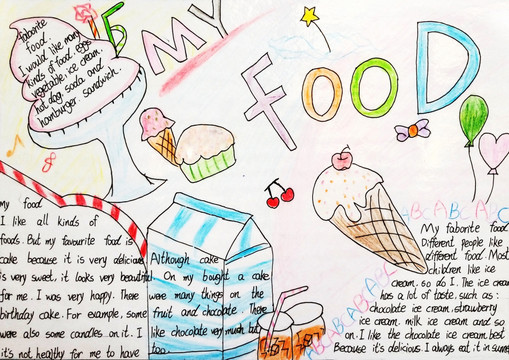 MY
FOOD
faborite
food.
I would like many
kinds of food. eggs
vegetable. ice cream.
hot dog. soda and
hamburger. sandwich.
My food
I like all kinds of
foods. But my favourite food is
cake because it is very delicious
is very sweet, it looks very beautiful
for me. I was very happy. There
birthday cake. For example, some
were also some candles. on it. I
it's not healthy for me to have
Although cake
. On my bought a cake
were many things on the
fruit and chocolate. There
like chocolate very much but
too
My faborite food
Different people like
different food. Most
children like ice
cream. so do I. The ice cream
has a lot of taste. such as:
chocolate ice cream. strawberry
ice cream. milk ice cream and so
on. I like the chocolate ice cream best
Because it's delicious I always eat it in summ
ABC ABCABC
ABCABCABC